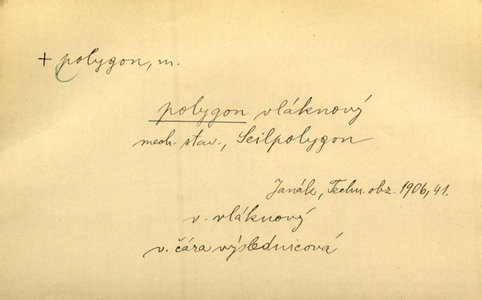 + polygon, m.
polygon vláknový
mech. stav., Seilpolygon
Janák, Techn. obz. 1906, 41.
v. vláknový
v. čára výslednicová